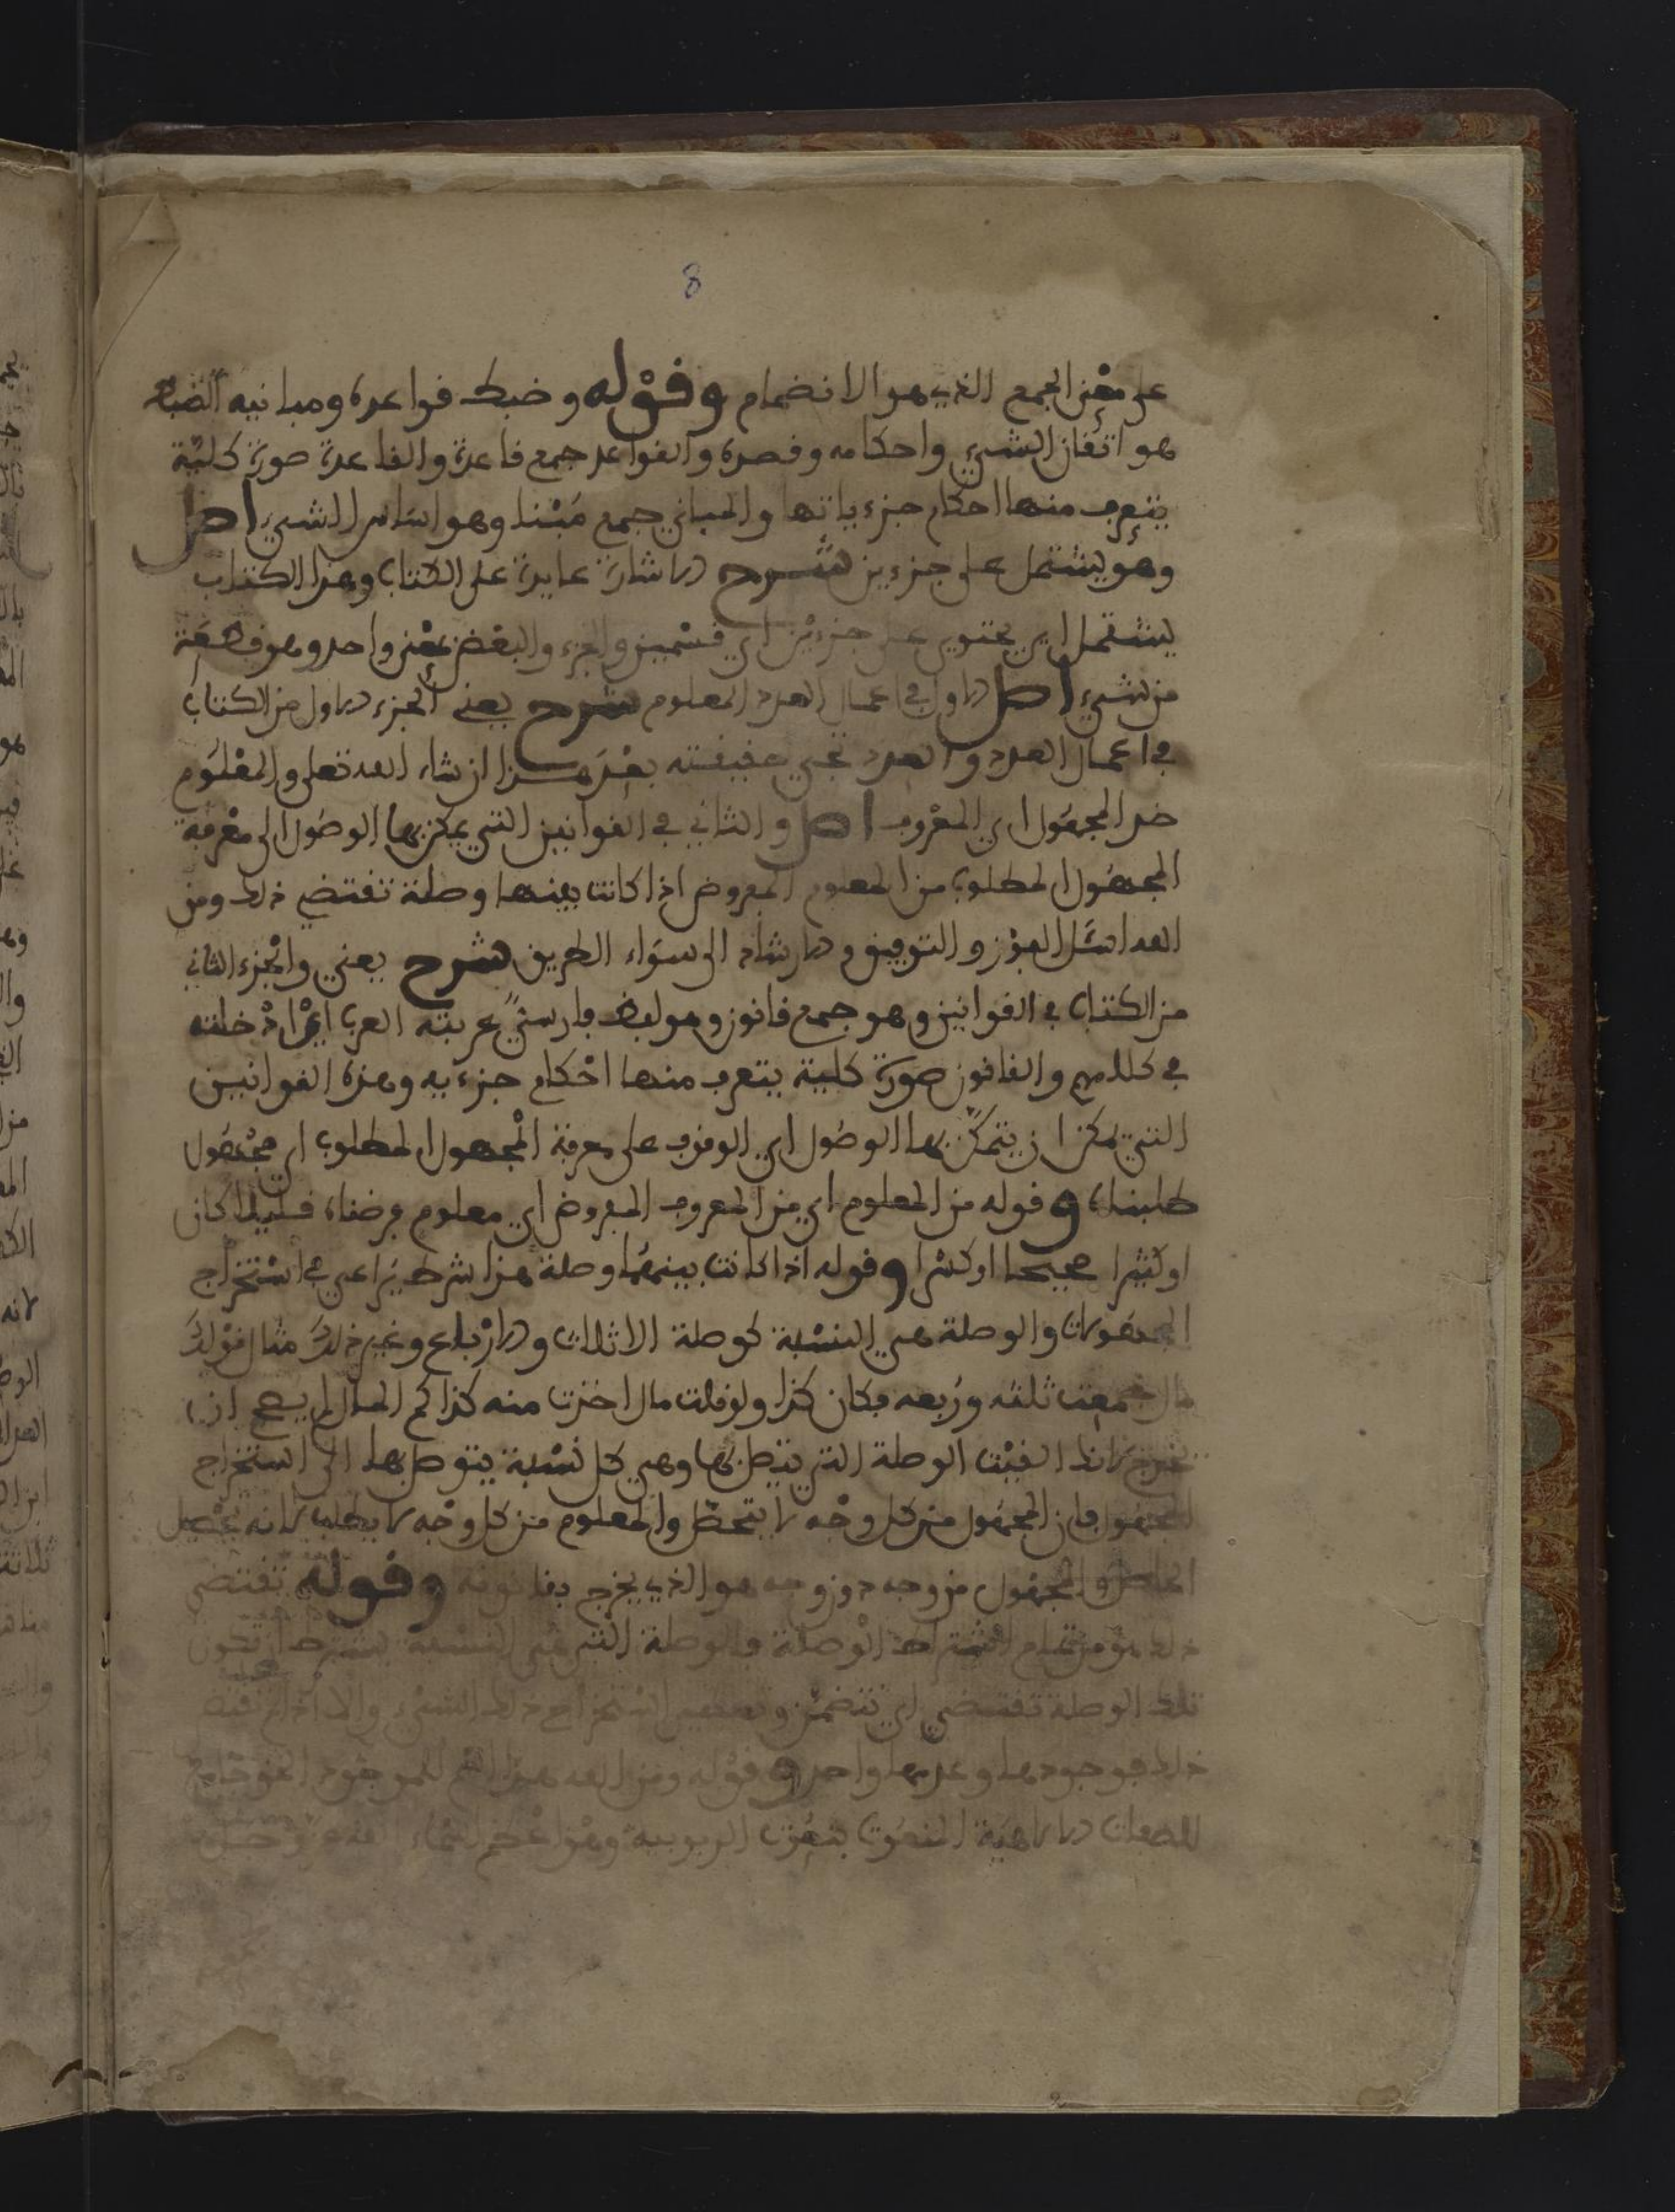 8
على معنى الجمع الذي هو الانضمام وقوله وضبط قواعده ومبانيه الضبط
هو اتقان الشيء واحكامه وقصده والقواعد جمع قاعدة والقاعدة صورة كلية
يتعرف منها احكام جزءياتها والمباني جمع مبنا وهو اساس الشيء اصل
وهو يشتمل على جزءين شرح الاشارة عايدة على الكتاب وهذا الكتاب
يشتمل اي يحتوي على جزءين اي قسمين والجزء والبعض بمعنى واحد وهو قطعة
من شيء اصل الاول في اعمال العدد المعلوم شرح يعني الجزء الاول من الكتاب
في اعمال العدد والعدد تجي حقيقته بعد هذا ان شاء الله تعلى والمعلوم
ضد المجهول اي المعروف اصل والثاني في القوانين التي يمكن بها الوصول الى معرفة
المجهول المطلوب من المعلوم المفروض اذا كانت بينهما وصلة تقتضي ذلك ومن
الله اسئل العون والتوفيق والارشاد الى سواء الطريق شرح يعني والجزء الثاني
من الكتاب في القوانين وهو جمع قانون وهو لفظ فارسي عربته العرب اي ادخلته
في كلامهم والقانون صورة كلية يتعرف منها احكام جزءيه وهذه القوانين
التي يمكن ان يتمكن بها الوصول اي الوقوف على معرفة المجهول المطلوب اي مجهول
طلبناه وقوله من المعلوم اي من المعروف المفروض اي معلوم فرضناه قليلا كان
او كثيرا صحيحا او كسرا وقوله اذا كانت بينهما وصلة هذا شرط يراعى في استخراج
المجهولات والوصلة هي النسبة كوصلة الاثلاث والارباع وغير ذلك مثال قولك
مال جمعت ثلثه وربعه فكان كذا ولو قلت مال اخذت منه كذا كم المال لم يصح ان
تخرج لانك الفيت الوصلة التي يتصل بها وهي كل نسبة يتوصل بها الى استخراج
المجهول فان المجهول من كل وجه لا يتحصل والمعلوم من كل وجه لا يطلب لانه تحصيل
الحاصل والمجهول من وجه دون وجه هو الذي يخرج بقانونه وقوله تقتضي
ذلك هو من تمام اشتراط الوصلة والوصلة التي هي النسبة يشترط ان تكون
تلك الوصلة تقتضي اي تتضمن استخراج ذلك الشيء والا اذا لم تقتض
ذلك فوجودها وعدمها واحد وقوله ومن الله هذا اسم للموجود الحق جامع
للصفات الالاهية المنعوت بنعوت الربوبية وهو اعظم اسماء الله عز وجل